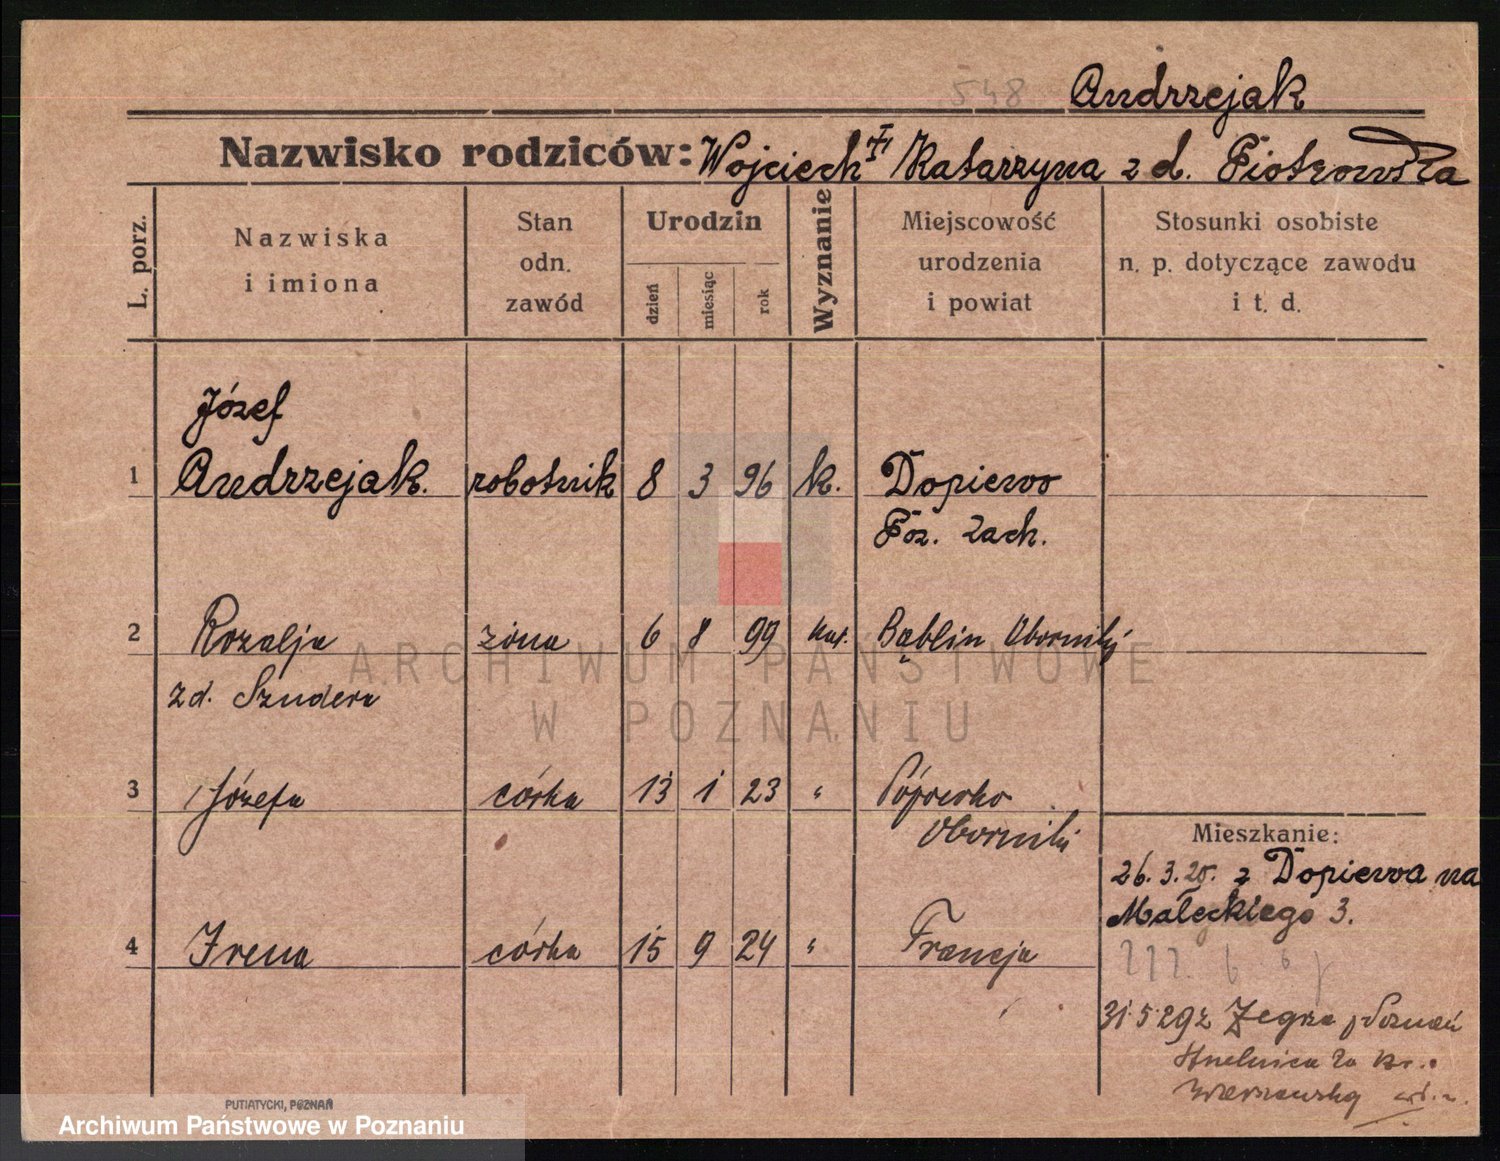 548 Andrzejak
Nazwisko rodziców: Wojciech Katarzyna z d. Piotrowska
L. porz.
Nazwiska
i imiona
Stan
odn.
zawód
Urodzin
dzień
miesiąc
rok
Wyznanie
Miejscowość
urodzenia
i powiat
Stosunki osobiste
n. p. dotyczące zawodu
i t. d.
Józef
1 Andrzejak. robotnik 8 3 96 k. Dopiewo
Poz. Zach.
2 Rozalja żona 6 8 99 kat. Bąblin Oborniki
z d. Szudera
3 Józefa córka 13 1 23 " Popówko
Oborniki
Mieszkanie:
26.3.25. z Dopiewa na
Małeckiego 3.
4 Irena córka 15 9 24 " Francja
31.5.29 z Zegrze p Poznań
Strzelnica
ARCHIWUM PAŃSTWOWE
W POZNANIU
PUTIATYCKI, POZNAŃ
Archiwum Państwowe w Poznaniu